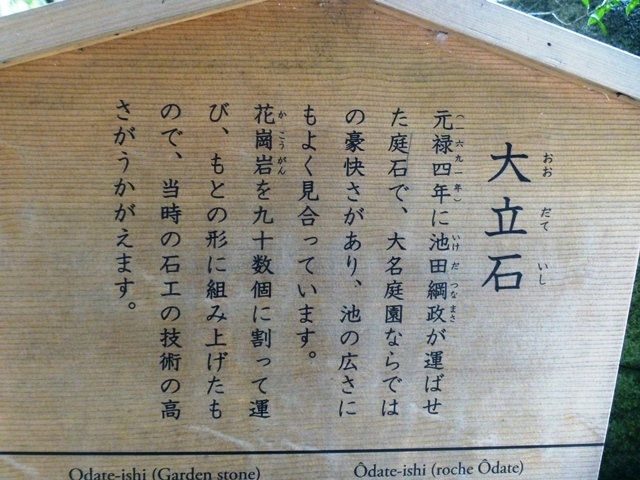 大立石
おおだていし
元禄四年に池田綱政が運ばせ
(一六九一年) いけだつなまさ
た庭石で、大名庭園ならでは
の豪快さがあり、池の広さに
もよく見合っています。
花崗岩を九十数個に割って運
かこうがん
び、もとの形に組み上げたも
ので、当時の石工の技術の高
さがうかがえます。
Odate-ishi (Garden stone)
Ôdate-ishi (roche Ôdate)